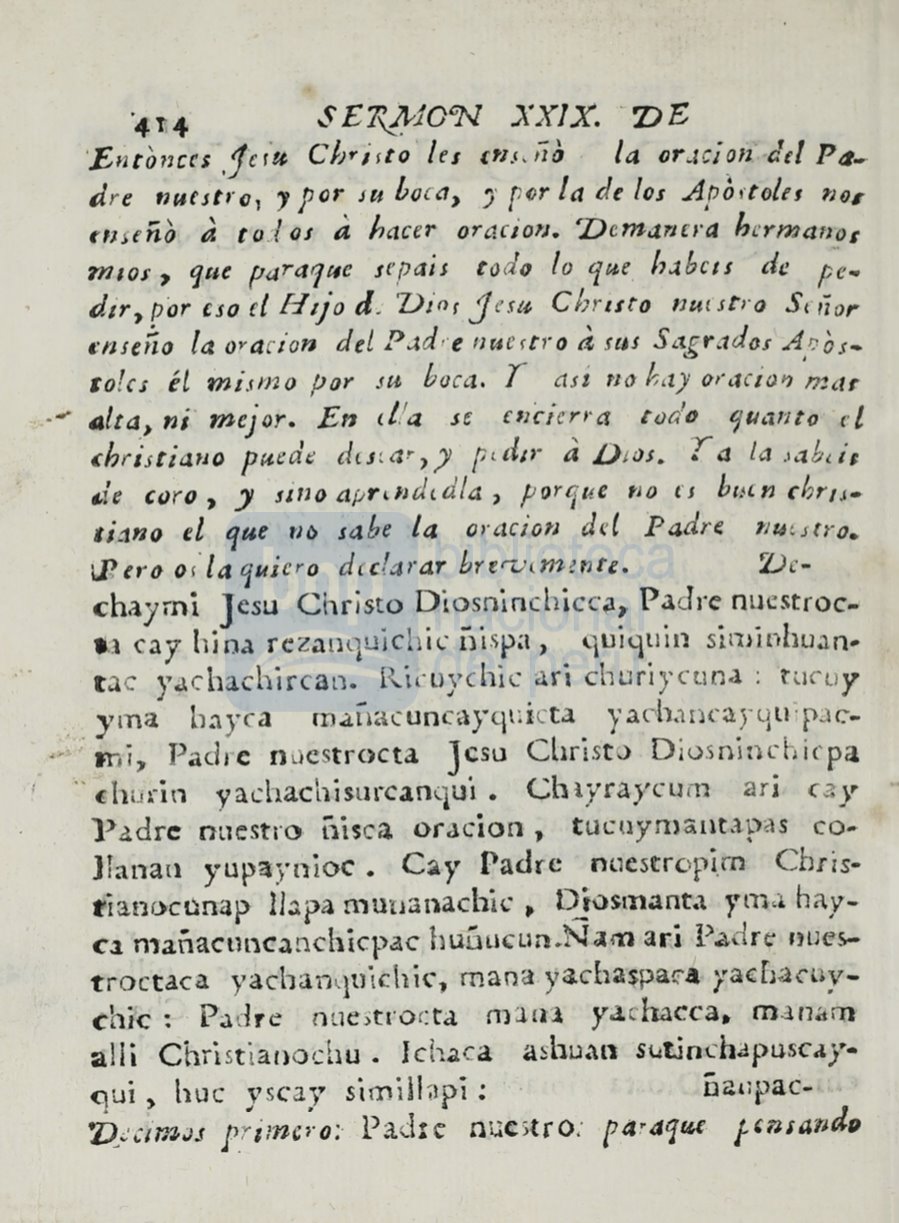 414 SERMON XXIX. DE
Entònces Jesu Christo les enseñò la oracion del Pa-
dre nuestro, y por su boca, y por la de los Apòstoles nos
enseñò à todos à hacer oracion. Demanera hermanos
mios, que paraque sepais todo lo que habeis de pe-
dir, por eso el Hijo de Dios Jesu Christo nuestro Señor
enseño la oracion del Padre nuestro à sus Sagrados Apòs-
toles él mismo por su boca. Y asi no hay oracion mas
alta, ni mejor. En ella se encierra todo quanto el
christiano puede desear, y pedir à Dios. Ya la sabeis
de coro, y sino aprendedla, porque no es buen chris-
tiano el que no sabe la oracion del Padre nuestro.
Pero os la quiero declarar brevemente. De-
chaymi Jesu Christo Diosninchicca, Padre nuestroc-
ta cay hina rezanquichic ñispa, quiquin siminhuan-
tac yachachircan. Ricuychic ari churiycuna : tucuy
yma hayca mañacuncayquicta yachancayquipac-
mi, Padre nuestrocta Jesu Christo Diosninchicpa
churin yachachisurcanqui. Chayraycum ari cay
Padre nuestro ñisca oracion, tucuymantapas co-
llanan yupaynioc. Cay Padre nuestropim Chris-
tianocunap llapa munanachic, Diosmanta yma hay-
ca mañacuncanchicpac huñucun. Ñam ari Padre nues-
troctaca yachanquichic, mana yachaspaca yachacuy-
chic : Padre nuestrocta mana yachacca, manam
alli Christianochu. Ichaca ashuan sutinchapuscay-
qui, huc yscay simillapi : ñaupac-
Decimos primero: Padre nuestro: paraque pensando
biblioteca
nacional
del perú